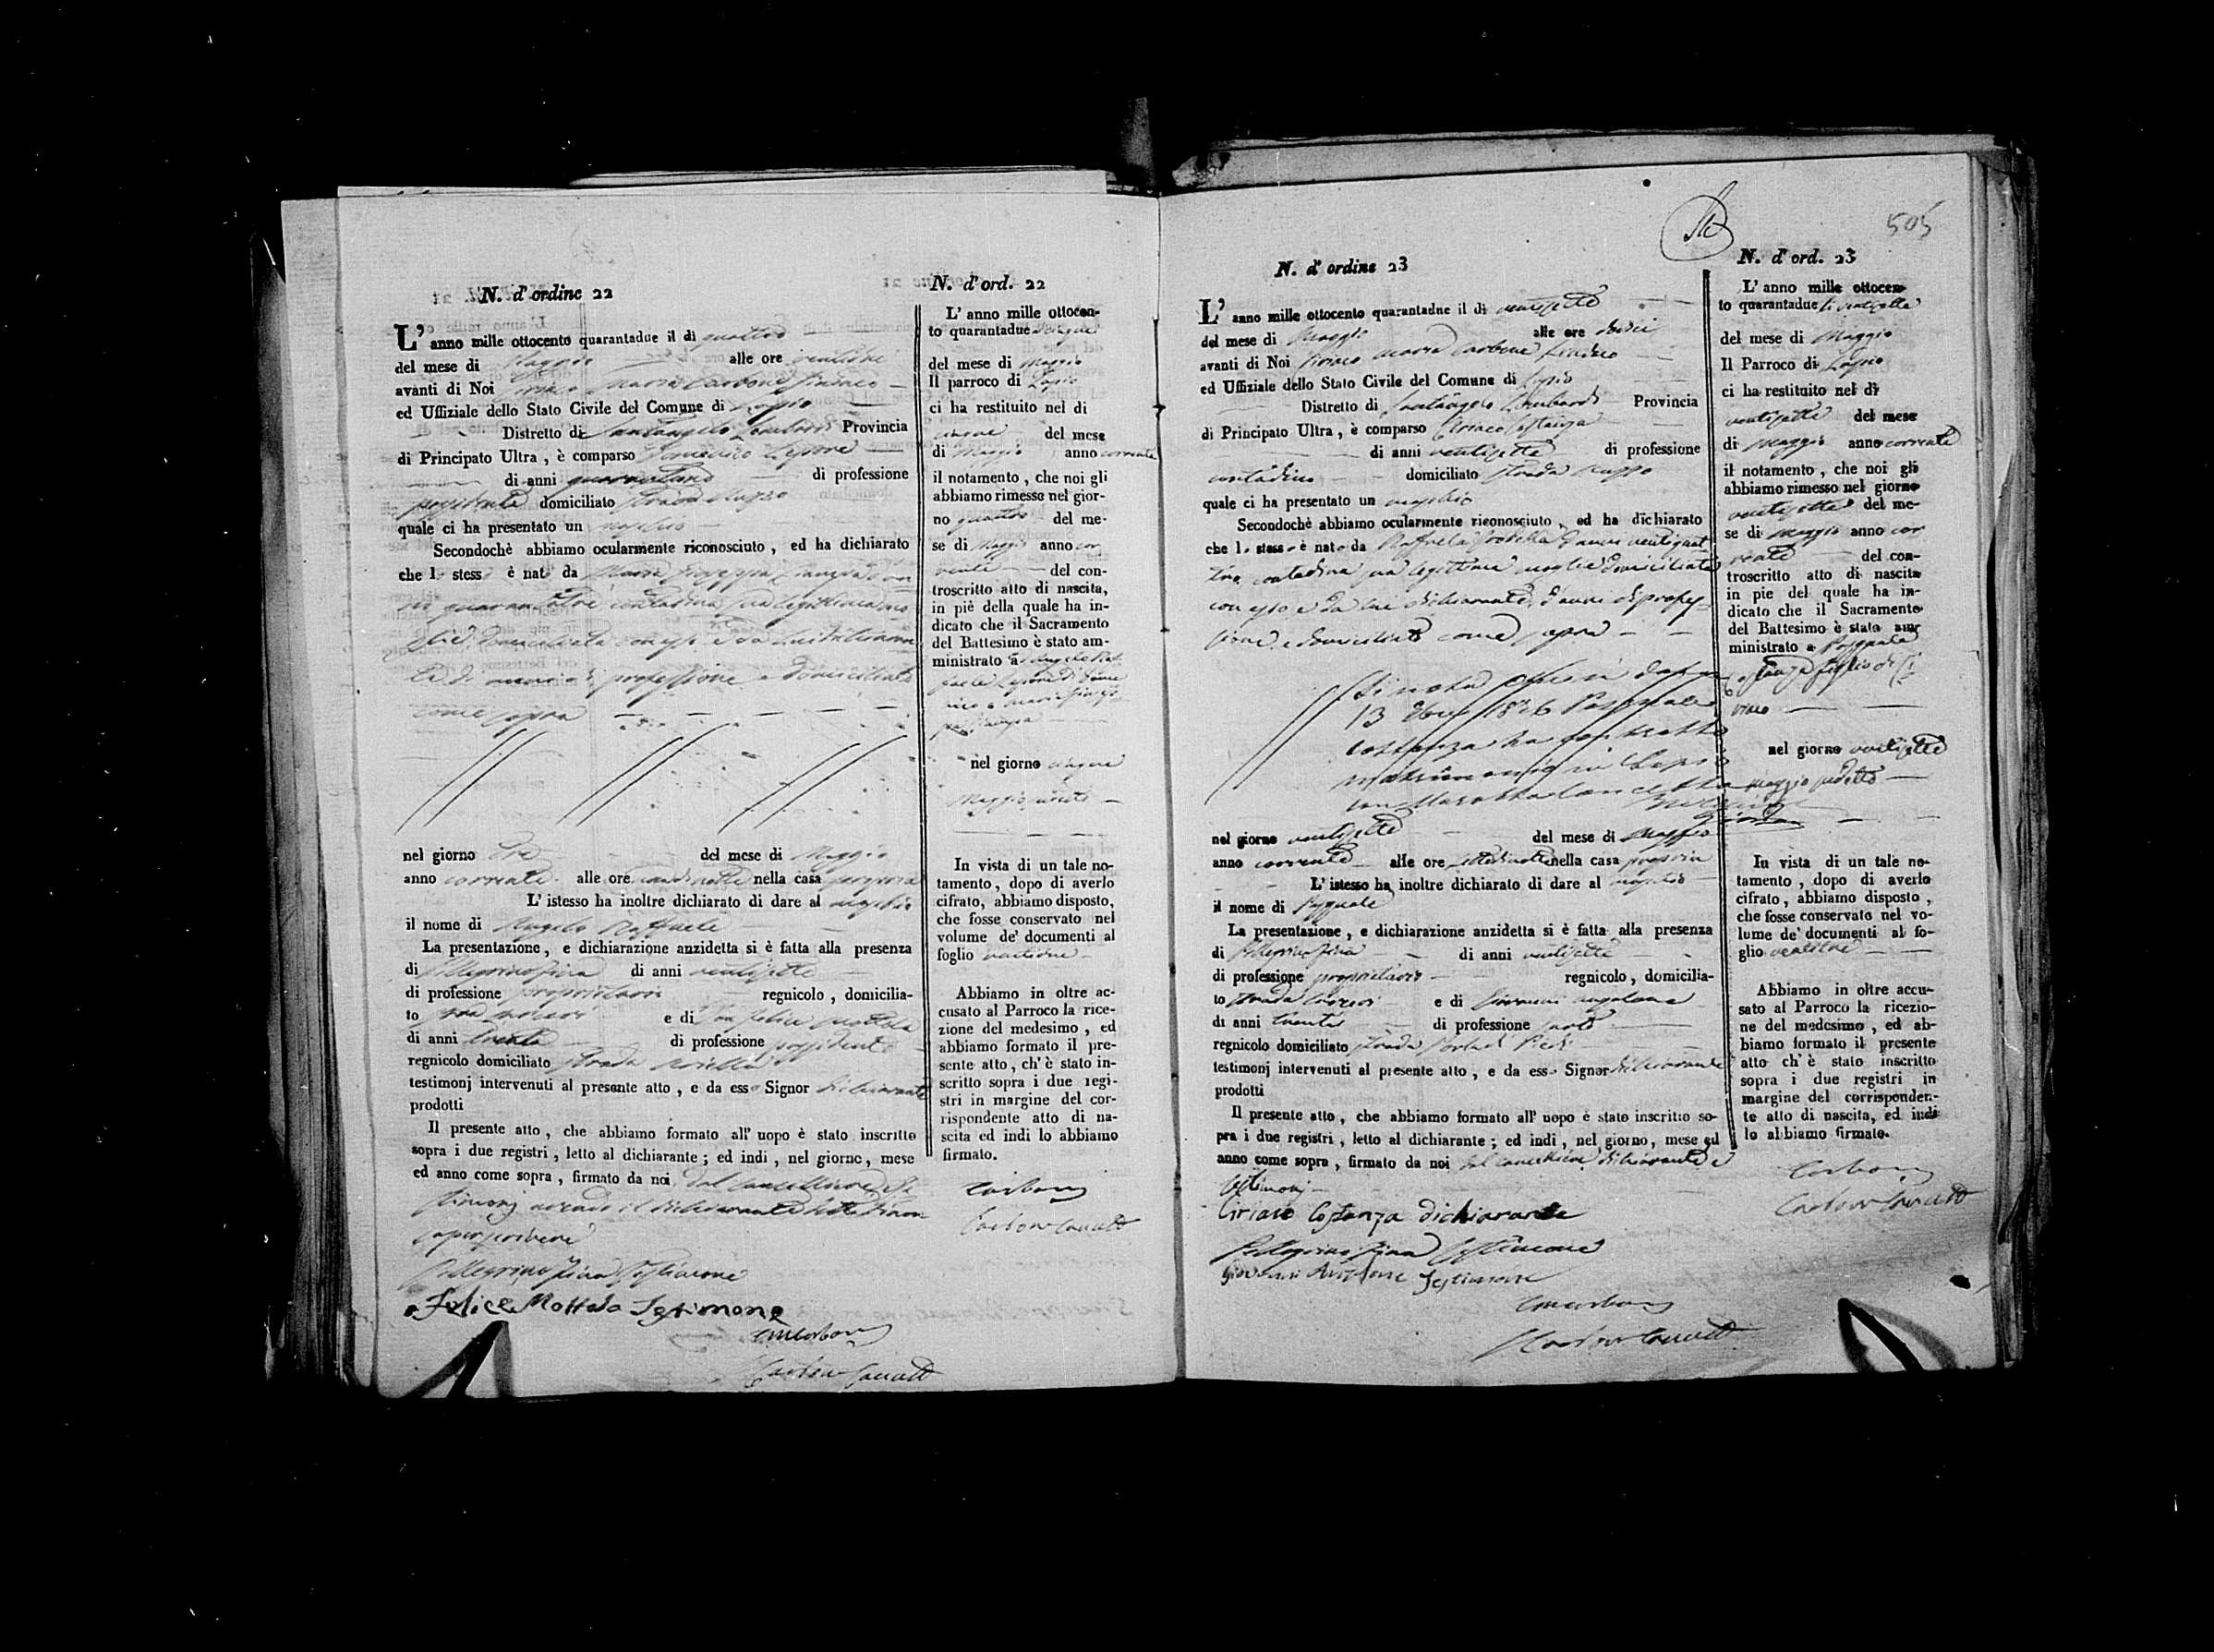 N. d' ordine 22
L' anno mille ottocento quarantadue il di quattro
del mese di Maggio alle ore
avanti di Noi Ciriaco Maria Carbone Sindaco
ed Uffiziale dello Stato Civile del Comune di Lapio
Distretto di Santangelo Lombardi Provincia
di Principato Ultra , è comparso Domenico Lepore
di anni di professione
domiciliato strada
quale ci ha presentato un maschio
Secondochè abbiamo ocularmente riconosciuto , ed ha dichiarato
che l stess è nat da Maria Gioseppa
contadina sua legittima mo
glie domiciliata con esso e da lui dichiaran
te di anni e professione e domiciliato
come sopra
nel giorno tre del mese di Maggio
anno corrente alle ore nella casa propria
L' istesso ha inoltre dichiarato di dare al maschio
il nome di Angelo Raffaele
La presentazione , e dichiarazione anzidetta si è fatta alla presenza
di Pellegrino di anni ventisette
di professione proprietario regnicolo , domicilia-
to e di Don Felice Mottola
di anni trenta di professione possidente
regnicolo domiciliato strada
testimonj intervenuti al presente atto , e da esso Signor dichiarante
prodotti
Il presente atto , che abbiamo formato all' uopo è stato inscritto
sopra i due registri , letto al dichiarante ; ed indi , nel giorno , mese
ed anno come sopra , firmato da noi dal Cancelliere e te
stimonj avendo il dichiarante detto di non
saper scrivere
Pellegrino testimone
Felice Mottola Testimone
CMCarbone
Carbone Cancell
N. d' ord. 22
L' anno mille ottocen-
to quarantadue cinque
del mese di Maggio
Il parroco di Lapio
ci ha restituito nel di
cinque del mese
di Maggio anno corrente
il notamento , che noi gli
abbiamo rimesso nel gior-
no quattro del me-
se di Maggio anno cor
rente del con-
troscritto atto di nascita,
in piè della quale ha in-
dicato che il Sacramento
del Battesimo è stato am-
ministrato a Angelo Raf
faele Lepore di Dome
nico e Maria Giosep
pa
nel giorno cinque
Maggio
In vista di un tale no-
tamento , dopo di averlo
cifrato, abbiamo disposto,
che fosse conservato nel
volume de' documenti al
foglio ventidue
Abbiamo in oltre ac-
cusato al Parroco la rice-
zione del medesimo , ed
abbiamo formato il pre-
sente atto , ch' è stato in-
scritto sopra i due regi-
stri in margine del cor-
rispondente atto di na-
scita ed indi lo abbiamo
firmato.
Carbone
Carbone Cancell
505
N. d' ordine 23
L' anno mille ottocento quarantadue il di ventisette
del mese di Maggio alle ore dodici
avanti di Noi Ciriaco Maria Carbone Sindaco
ed Uffiziale dello Stato Civile del Comune di Lapio
Distretto di Santangelo Lombardi Provincia
di Principato Ultra , è comparso Ciriaco Costanza
di anni ventisette di professione
contadino domiciliato strada
quale ci ha presentato un maschio
Secondochè abbiamo ocularmente riconosciuto , ed ha dichiarato
che lo stesso è nato da Raffaela d'anni ventiquat
tro contadina sua legittima moglie domiciliata
con esso e da lui dichiarante, d'anni di profes-
sione e domiciliato come sopra
Si nota che in data
13 1876 Pasquale
Costanza ha contratto
matrimonio in Lapio
con
nel giorno ventisette del mese di Maggio
anno corrente alle ore nella casa propria
L' istesso ha inoltre dichiarato di dare al maschio
il nome di Pasquale
La presentazione , e dichiarazione anzidetta si è fatta alla presenza
di Pellegrino di anni ventisette
di professione proprietario regnicolo , domicilia-
to strada e di Giovanni
di anni trenta di professione sarto
regnicolo domiciliato strada
testimonj intervenuti al presente atto , e da esso Signor dichiarante
prodotti
Il presente atto , che abbiamo formato all' uopo è stato inscritto so-
pra i due registri , letto al dichiarante ; ed indi , nel giorno, mese ed
anno come sopra , firmato da noi dal Cancelliere dichiarante e
testimonj
Ciriaco Costanza dichiarante
Pellegrino testimone
Giovanni Testimone
CMCarbone
Carbone Cancell
N. d' ord. 23
L' anno mille ottocen-
to quarantadue li ventisette
del mese di Maggio
Il Parroco di Lapio
ci ha restituito nel dì
ventisette del mese
di Maggio anno corrente
il notamento , che noi gli
abbiamo rimesso nel giorno
ventisette del me-
se di Maggio anno cor
rente del con-
troscritto atto di nascita
in pie del quale ha in-
dicato che il Sacramento
del Battesimo è stato am-
ministrato a Pasquale
Costanza figlio di Ci
riaco
nel giorno ventisette
Maggio sudetto
In vista di un tale no-
tamento , dopo di averlo
cifrato, abbiamo disposto ,
che fosse conservato nel vo-
lume de' documenti al fo-
glio ventitre
Abbiamo in oltre accu-
sato al Parroco la ricezio-
ne del medesimo , ed ab-
biamo formato il presente
atto ch' è stato inscritto
sopra i due registri in
margine del corrisponden-
te atto di nascita, ed indi
lo abbiamo firmato.
Carbone
Carbone Cancell